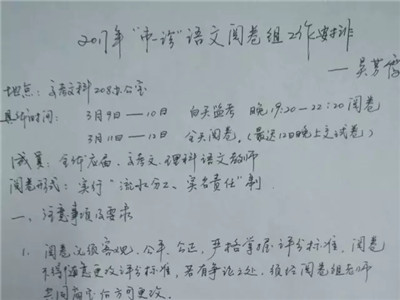 2017年“市一诊”语文阅卷组工作安排
——吴
地点：高文科208办公室
具体时间：3月9日—10日 白天监考 晚19:20—22:20阅卷
3月11日—12日 全天阅卷。（最迟12日晚上交试卷）
成员：全体应届、高文、理科语文教师
阅卷形式：实行“流水分工、实名责任”制
一、注意事项及要求
1. 阅卷必须客观、公平、公正，严格掌握评分标准，阅卷
不得随意更改评分标准，若有争议之处，须经阅卷组老师
共同商定后方可更改。